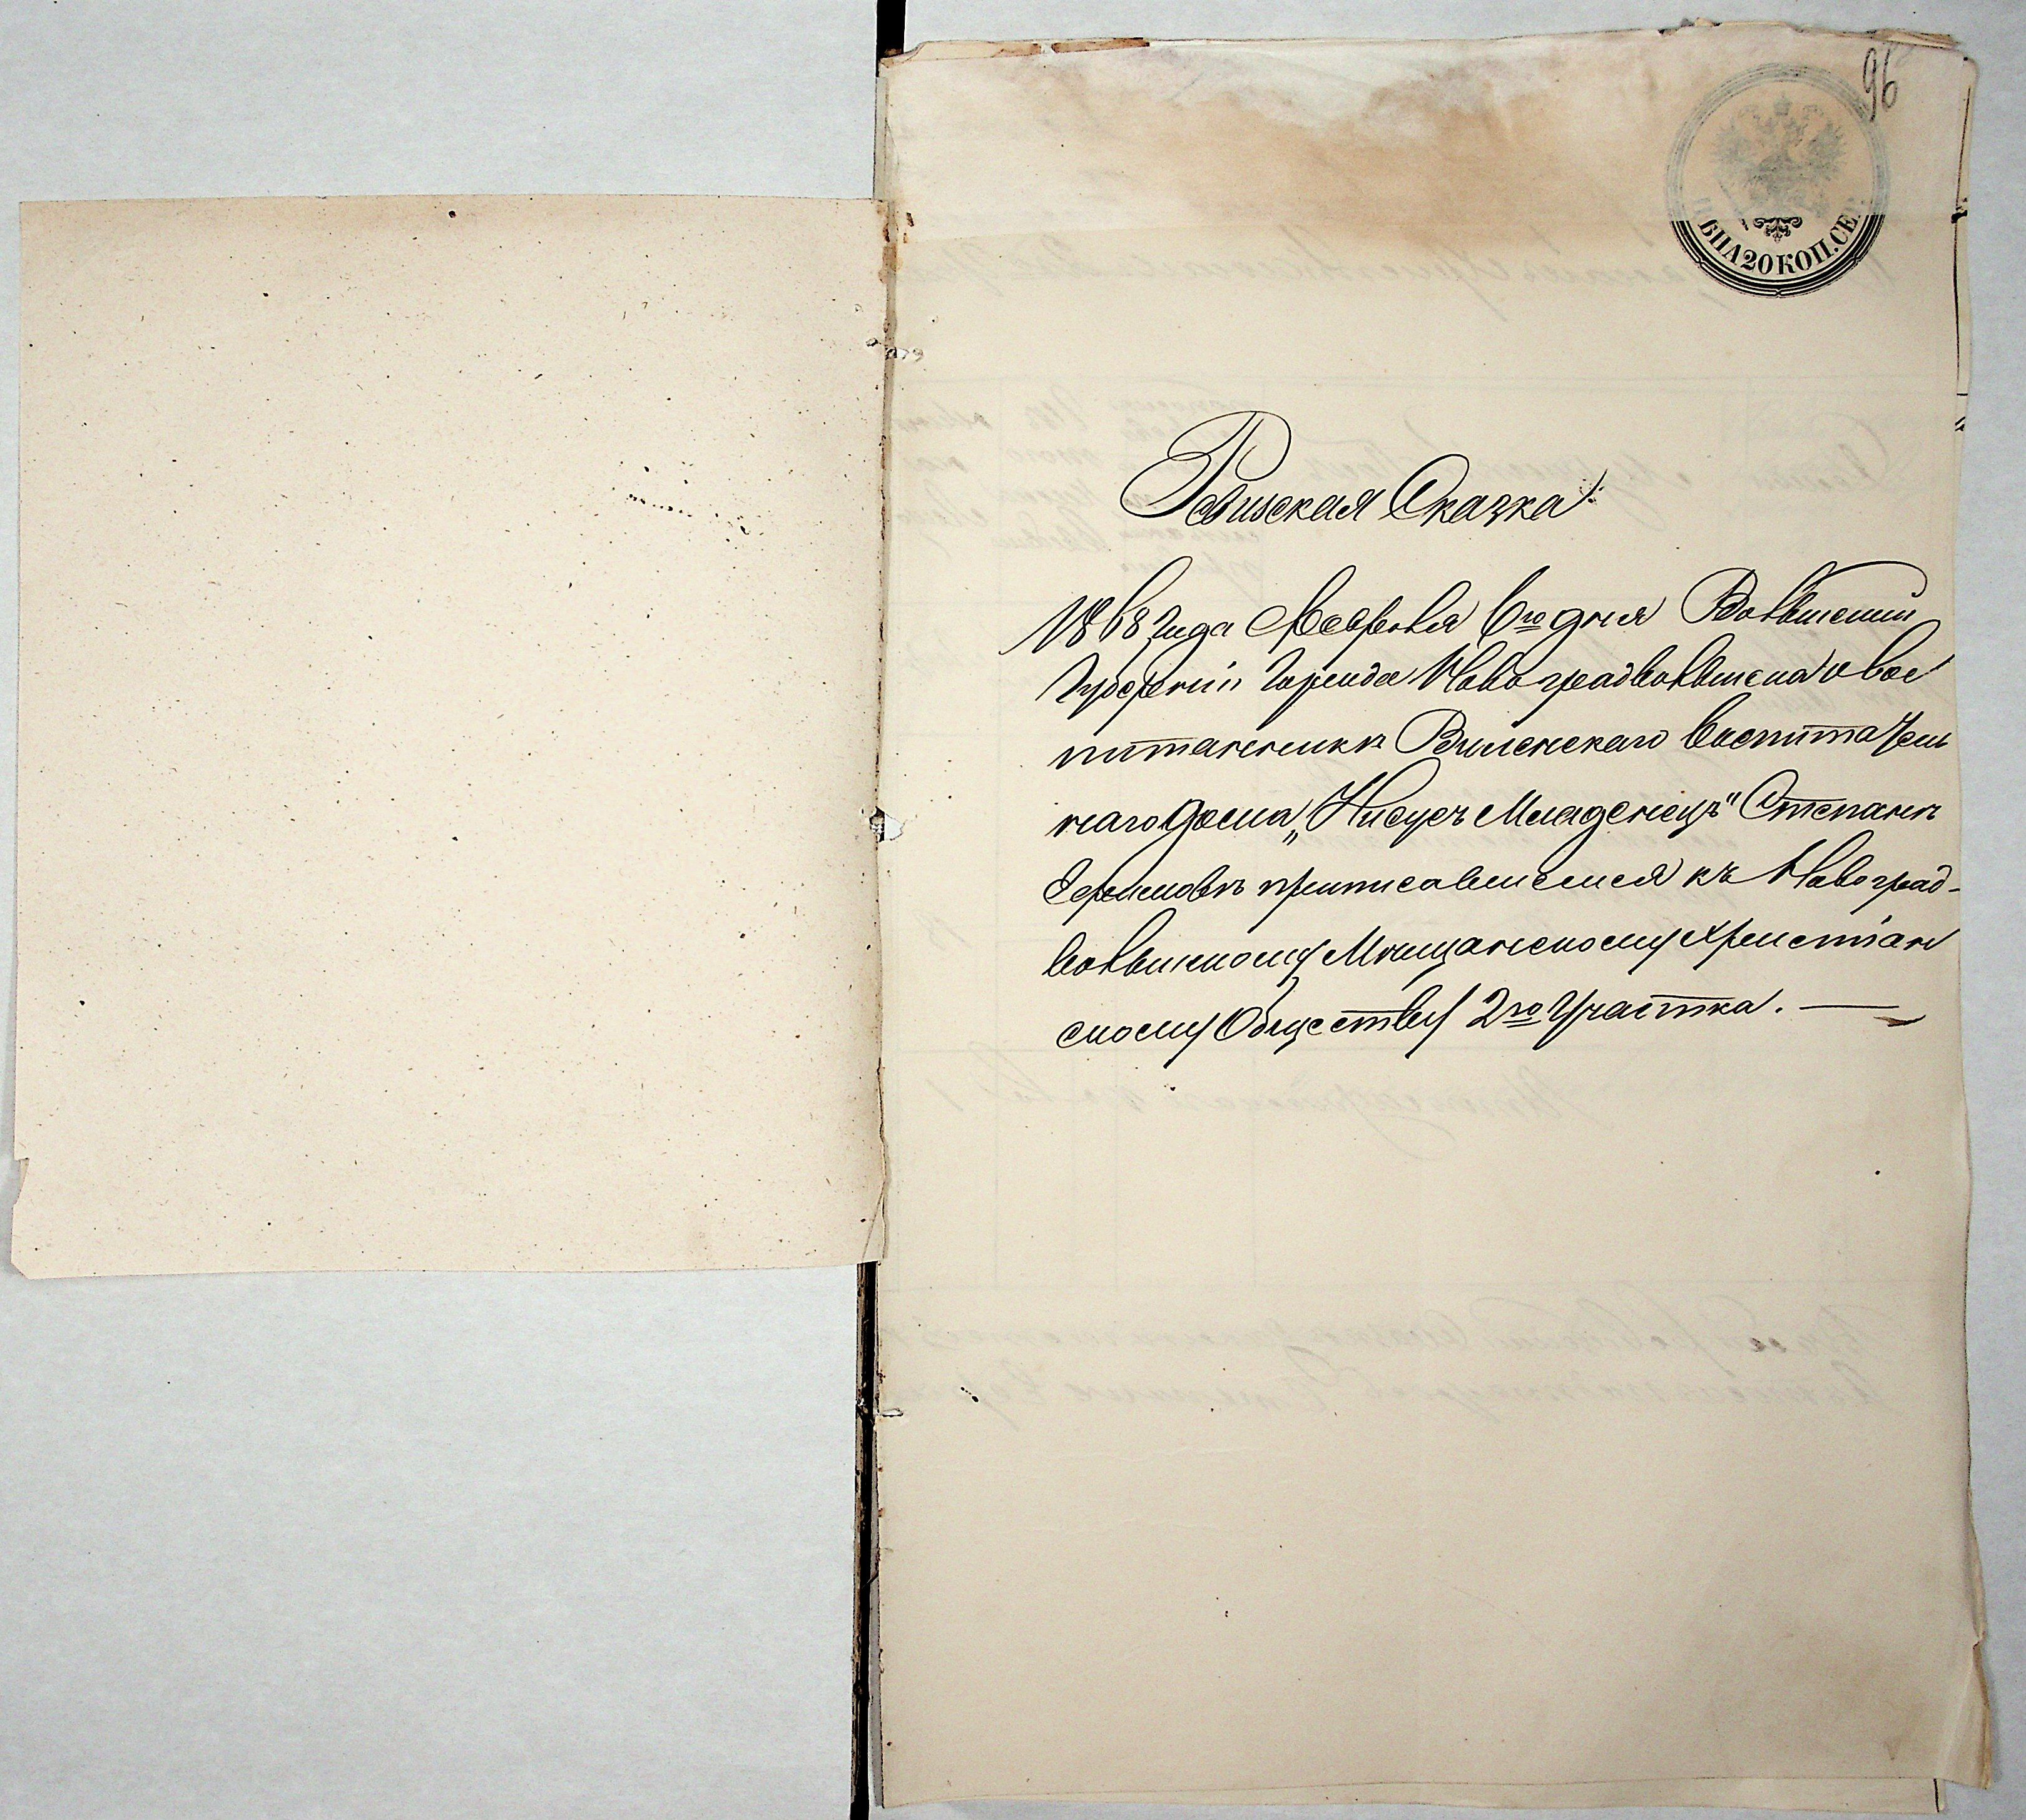 96
ЦѢНА 20 КОП. СЕР.
Ревизская Сказка
1868 года Февраля 6го дня Волынской
Губерніи Города Новоградволынска о вос
питанникѣ Виленскаго Воспитатель
наго дома „Иисусъ Младенецъ" Степанѣ
приписавшемся къ Новоград-
волынскому Мѣщанскому Христіан
скому Обществу 2го Участка. —